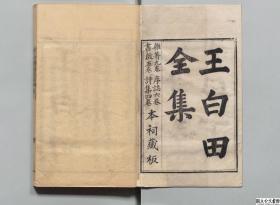 王白田
全集
雜著九卷 序誌六卷
書啟五卷 詩集四卷
本祠藏板